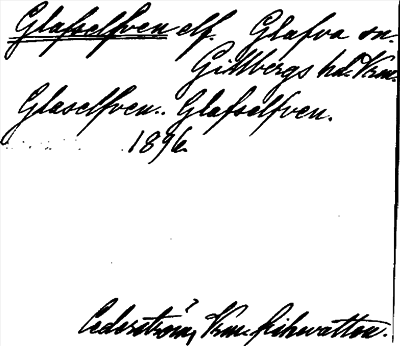 Glafselfven elf. Glafva sn.
Gillbergs hd. Vrm.
Glaselfven.. Glafselfven.
1896.
Cederström, Vrm. fiskvatten.